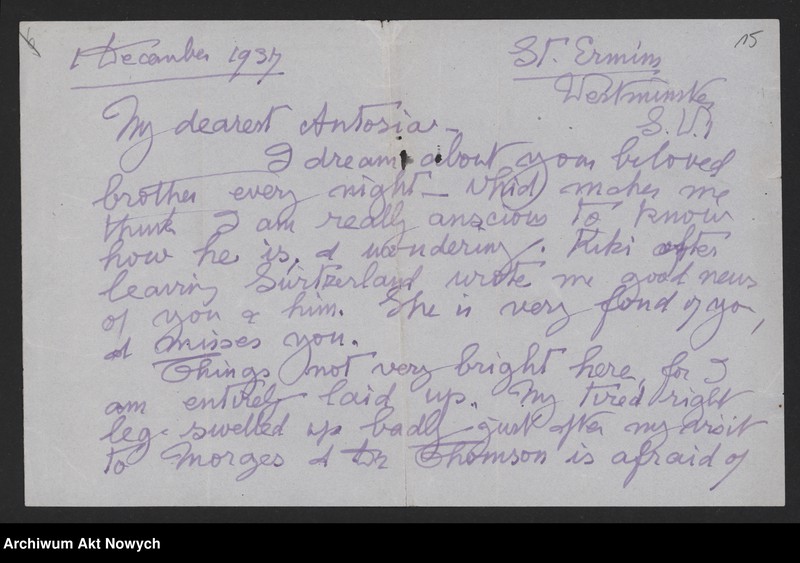 15
1 December 1937
St. Ermins
Westminster
S.W.1
My dearest Antosia -
I dream about your beloved
brother every night - which makes me
think I am really anxious to know
how he is, & wondering. Kiki after
leaving Switzerland wrote me good news
of you & him. She is very fond of you,
& misses you.
Things not very bright here, for I
am entirely laid up. My tired right
leg swelled up badly just after my visit
to Morges & Dr Thomson is afraid of
Archiwum Akt Nowych